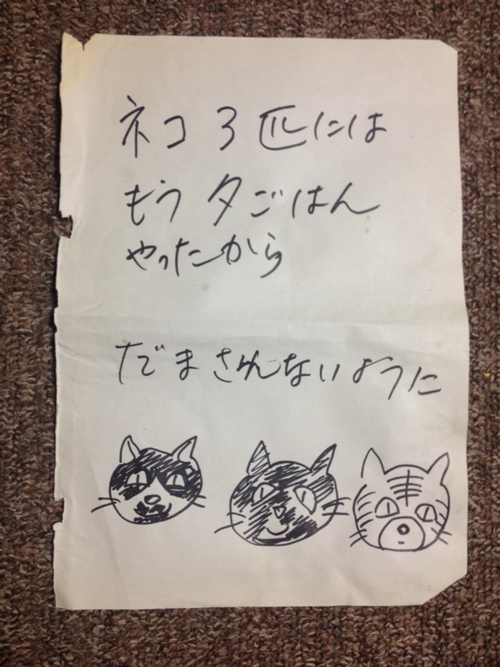 ネコ3匹には
もう夕ごはん
やったから
だまされんないように